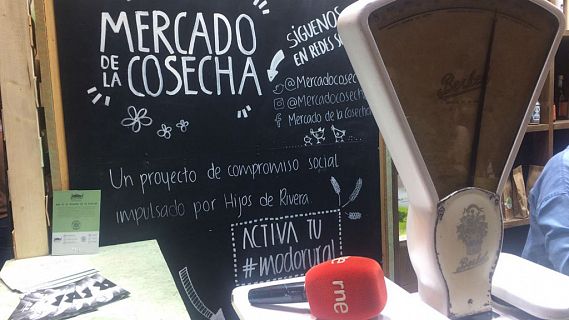 MERCADO
DE LA COSECHA
SÍGUENOS
EN REDES S
@Mercadocosec
@Mercadocosech
Mercado de la Cosecha
Un proyecto de compromiso social
impulsado por Hijos de Rivera.
ACTIVA TU
#modorural
rne
Berkel
Berkel